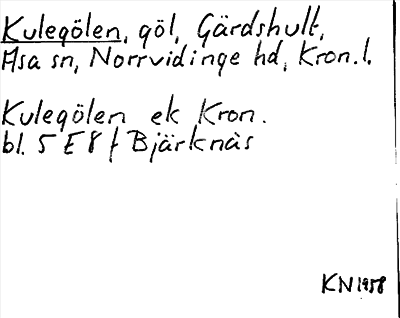 Kulegölen, göl, Gärdshult,
Asa sn, Norrvidinge hd, Kron.l.
Kulegölen ek Kron.
bl. 5 E 8 f Bjärknäs
KN 1958